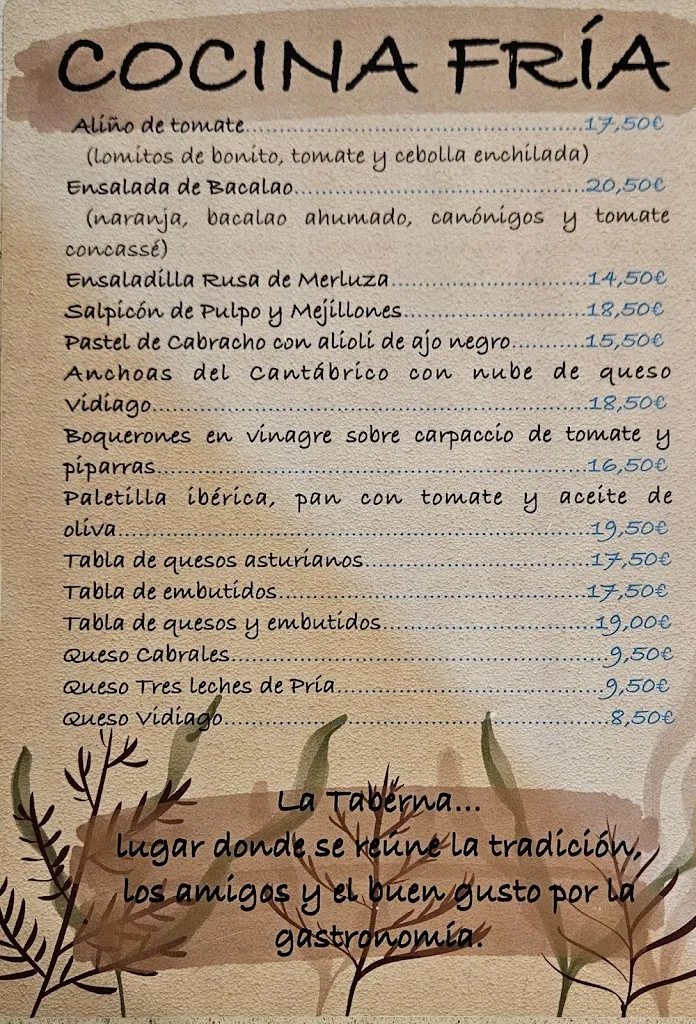 COCINA FRÍA
Aliño de tomate..............................................17,50€
(lomitos de bonito, tomate y cebolla enchilada)
Ensalada de Bacalao.......................................20,50€
(naranja, bacalao ahumado, canónigos y tomate
concassé)
Ensaladilla Rusa de Merluza..........................14,50€
Salpicón de Pulpo y Mejillones........................18,50€
Pastel de Cabracho con alioli de ajo negro..........15,50€
Anchoas del Cantábrico con nube de queso
Vidiago..........................................................18,50€
Boquerones en vinagre sobre carpaccio de tomate y
piparras.........................................................16,50€
Paletilla ibérica, pan con tomate y aceite de
oliva..............................................................19,50€
Tabla de quesos asturianos..............................17,50€
Tabla de embutidos.........................................17,50€
Tabla de quesos y embutidos............................19,00€
Queso Cabrales.................................................9,50€
Queso Tres leches de Pría..................................9,50€
Queso Vidiago..................................................8,50€
La Taberna...
lugar donde se reúne la tradición,
los amigos y el buen gusto por la
gastronomía.